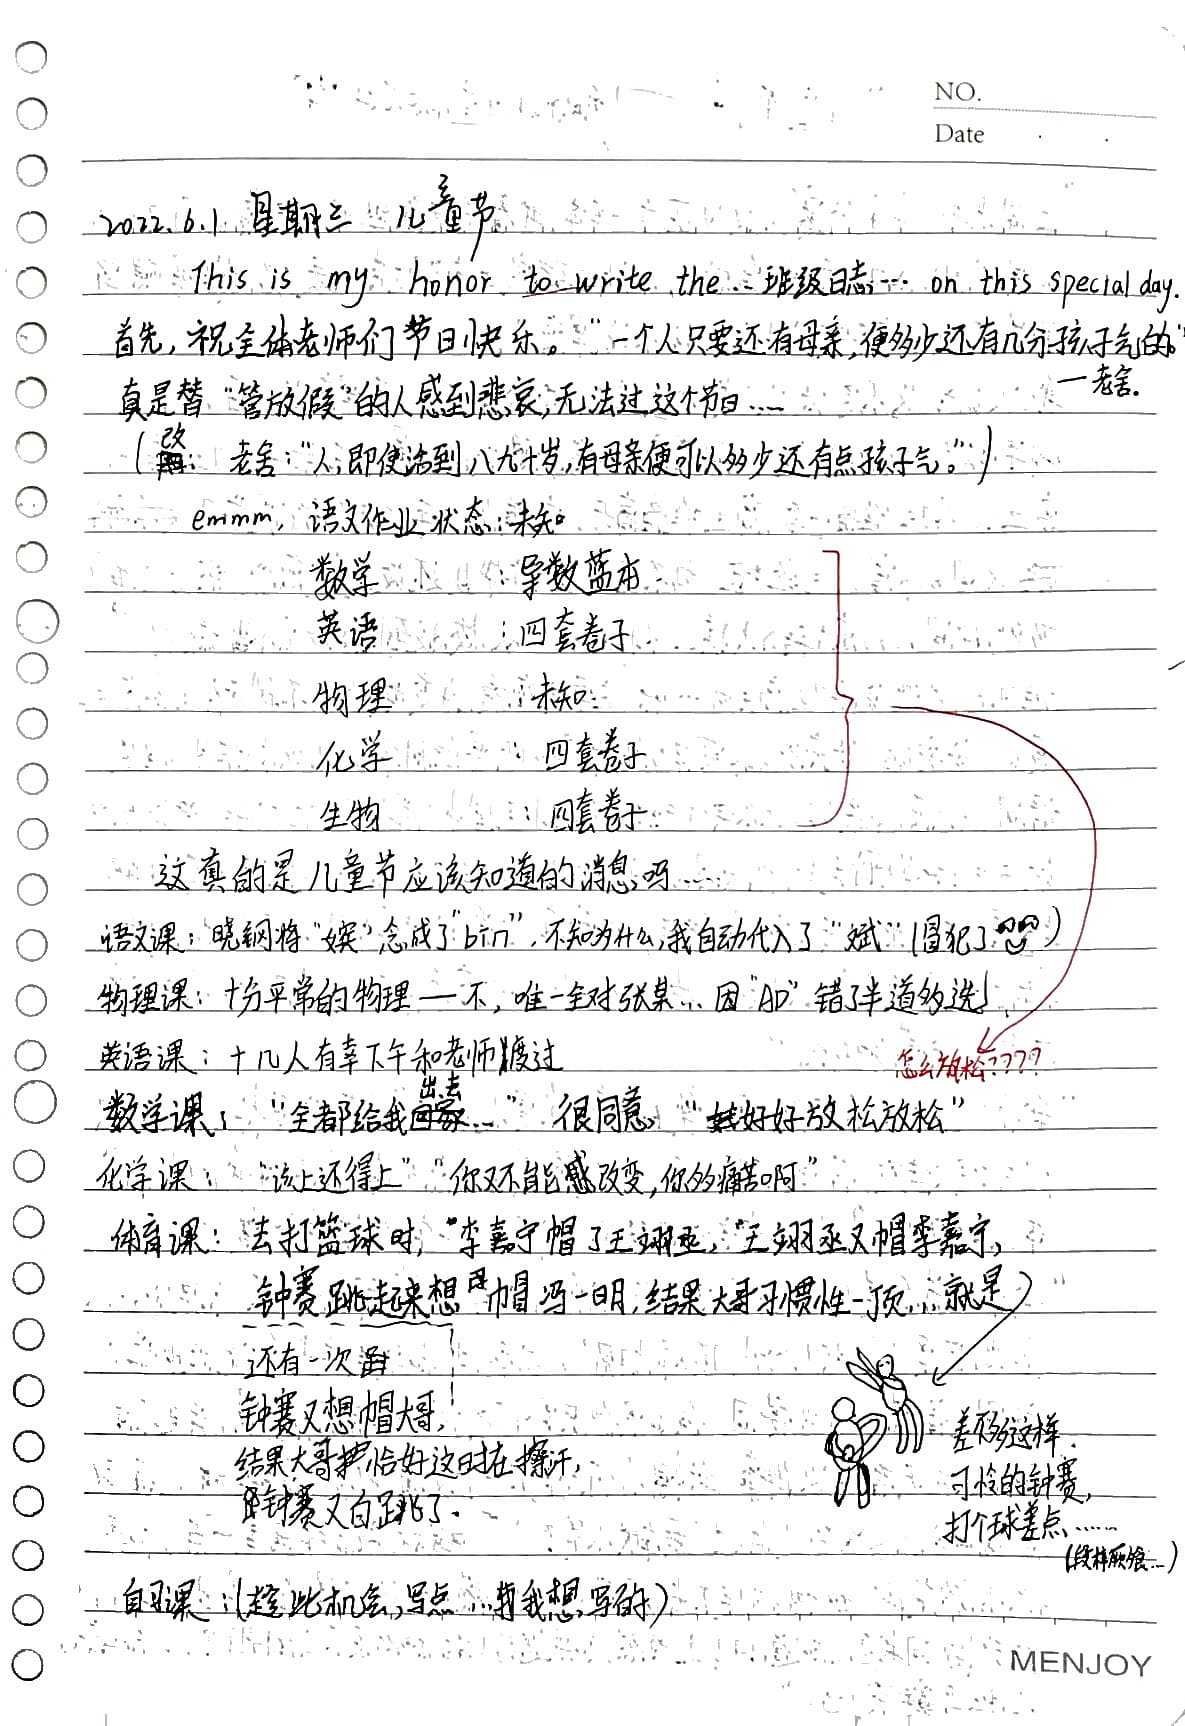 NO.
Date
2022.6.1 星期三 儿童节
This is my honor to write the … 班级日志 … on this special day.
首先，祝全体老师们节日快乐。“一个人只要还有母亲，便多少还有几分孩子气的。”
—老舍.
真是替“管放假”的人感到悲哀，无法过这个节日……
（改：老舍：“人，即使活到八九十岁，有母亲便可以多少还有点孩子气。”）
emmm，语文作业状态：未知
数学：导数蓝本
英语：四套卷子
物理：未知
化学：四套卷子
生物：四套卷子
这真的是儿童节应该知道的消息吗……
语文课：晓钢将“嫔”念成了“bin”，不知为什么，我自动代入了“斌”（冒犯了）
物理课：十分平常的物理—不，唯一全对张某…因“AD”错了半道多选
英语课：十几人有幸下午和老师渡过
怎么放松????
数学课：“全都给我出去…” 很同意 “好好放松放松”
化学课：“该上还得上”“你又不能感改变，你多痛苦啊”
体育课：去打篮球时，“李嘉宁帽了王翊丞，“王翊丞又帽李嘉宁，
钟赛跳起来想帽冯一明，结果大哥习惯性一顶…就是
还有一次
钟赛又想帽大哥，
结果大哥恰好这时在擦汗，
钟赛又白跳了.
差不多这样.
可怜的钟赛，
打个球差点……
自习课：（趁此机会，写点…我想写的）
MENJOY